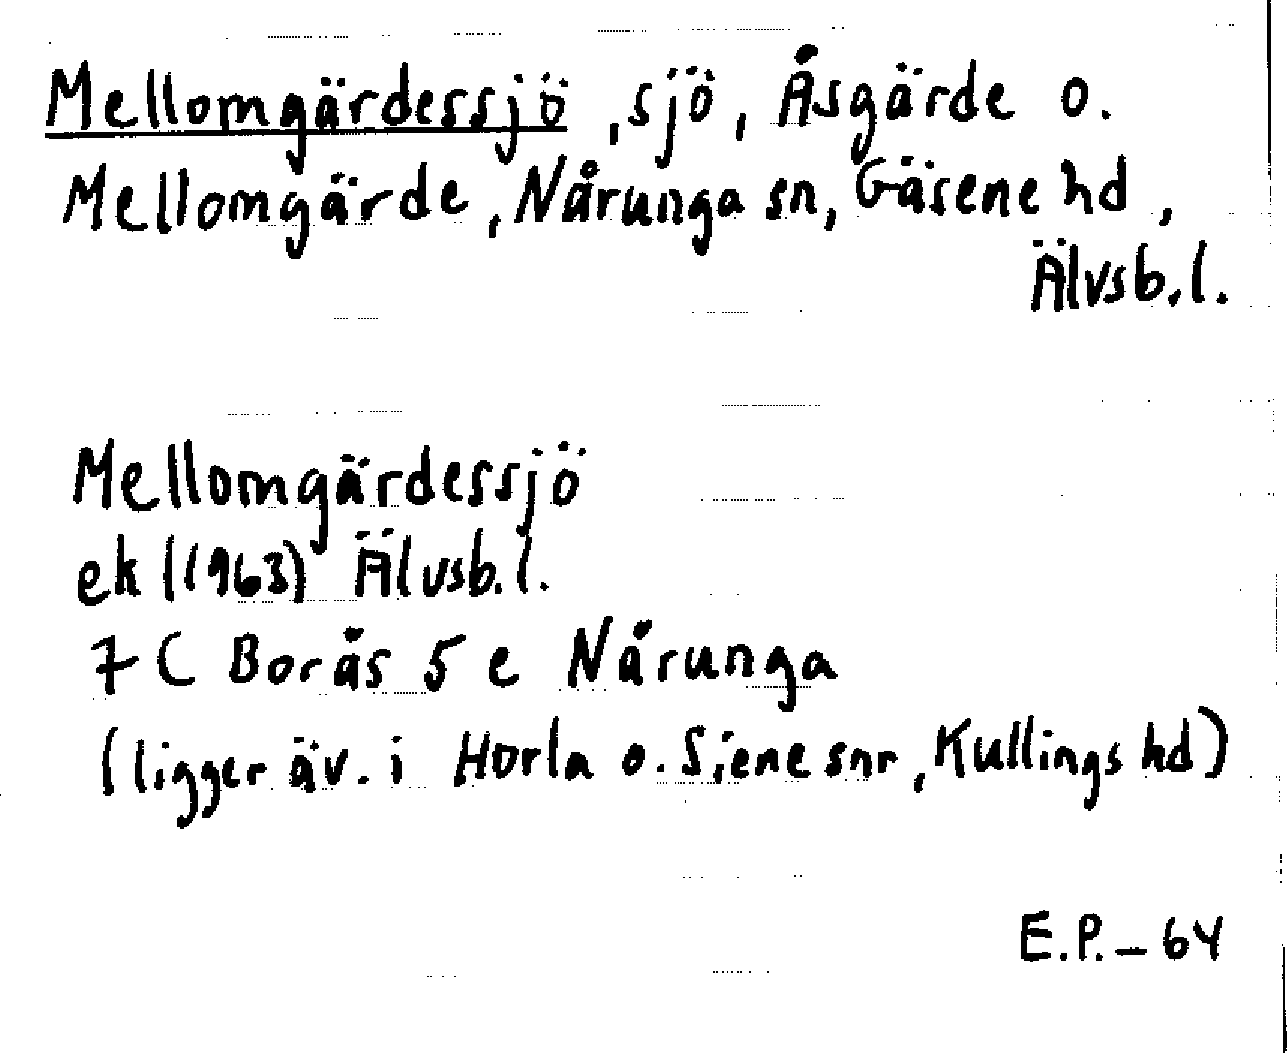 Mellomgärdessjö, sjö, Åsgärde o.
Mellomgärde, Nårunga sn, Gäsene hd,
Älvsb.l.
Mellomgärdessjö
ek (1963) Älvsb.l.
7 C Borås 5 e Nårunga
(ligger äv. i Horla o. Siene snr, Kullings hd)
E.P. – 64